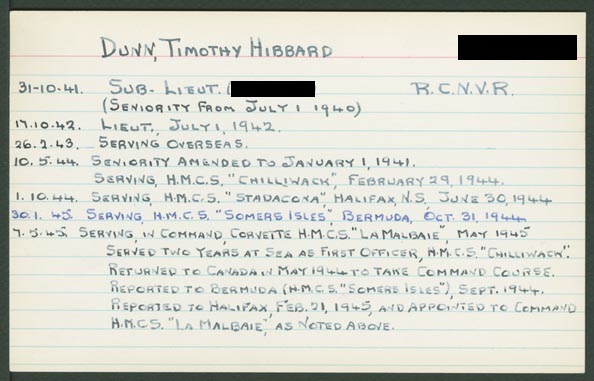 DUNN, TIMOTHY HIBBARD
31-10-41. SUB-LIEUT. ( R.C.N.V.R.
(SENIORITY FROM JULY 1 1940)
17.10.42. LIEUT., JULY 1, 1942.
26.2.43. SERVING OVERSEAS.
10.5.44. SENIORITY AMENDED TO JANUARY 1, 1941.
SERVING, H.M.C.S. "CHILLIWACK", FEBRUARY 29, 1944.
1.10.44. SERVING, H.M.C.S. "STADACONA", HALIFAX, N.S., JUNE 30, 1944
30.1.45. SERVING, H.M.C.S. "SOMERS ISLES", BERMUDA, OCT. 31, 1944
7.5.45. SERVING, IN COMMAND, CORVETTE H.M.C.S. "LA MALBAIE", MAY 1945
SERVED TWO YEARS AT SEA AS FIRST OFFICER, H.M.C.S. "CHILLIWACK".
RETURNED TO CANADA IN MAY 1944 TO TAKE COMMAND COURSE.
REPORTED TO BERMUDA (H.M.C.S. "SOMERS ISLES"), SEPT. 1944.
REPORTED TO HALIFAX, FEB. 21, 1945, AND APPOINTED TO COMMAND
H.M.C.S. "LA MALBAIE", AS NOTED ABOVE.